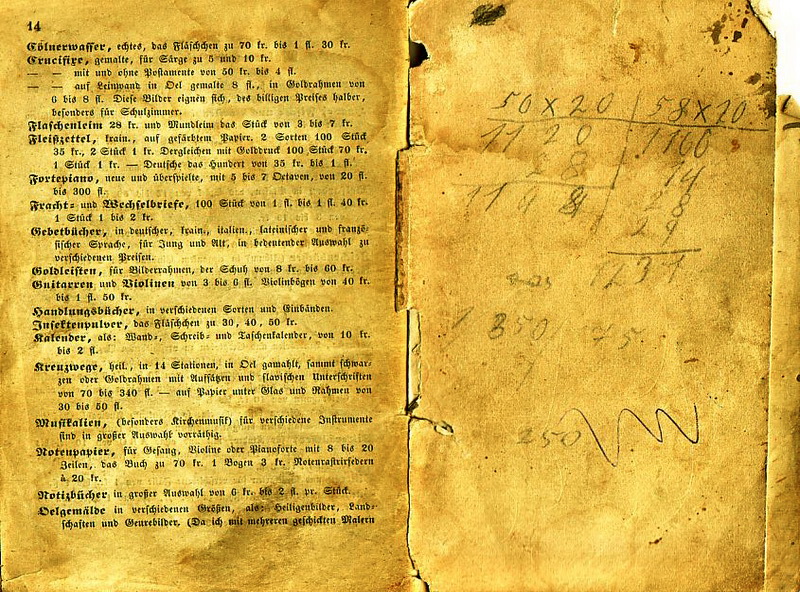 14
Cölnerwasser, echtes, das Fläschchen zu 70 kr. bis 1 fl. 30 kr.
Crucifixe, gemalte, für Särge zu 5 und 10 kr.
— — mit und ohne Postamente von 50 kr. bis 4 fl.
— — auf Leinwand in Oel gemalte 8 fl., in Goldrahmen von
6 bis 8 fl. Diese Bilder eignen sich, des billigen Preises halber,
besonders für Schulzimmer.
Flaschenleim 28 kr. und Mundleim das Stück von 3 bis 7 kr.
Fleißzettel, krain., auf gefärbtem Papier, 2 Sorten 100 Stück
35 kr., 2 Stück 1 kr. Dergleichen mit Golddruck 100 Stück 70 kr.
1 Stück 1 kr. — Deutsche das Hundert von 35 kr. bis 1 fl.
Fortepiano, neue und überspielte, mit 5 bis 7 Octaven, von 20 fl.
bis 300 fl.
Fracht- und Wechselbriefe, 100 Stück von 1 fl. bis 1 fl. 40 kr.
1 Stück 1 bis 2 kr.
Gebetbücher, in deutscher, krain., italien., lateinischer und franzö-
sischer Sprache, für Jung und Alt, in bedeutender Auswahl zu
verschiedenen Preisen.
Goldleisten, für Bilderrahmen, der Schuh von 8 kr. bis 60 kr.
Guitarren und Violinen von 3 bis 6 fl. Violinbögen von 40 kr.
bis 1 fl. 50 kr.
Handlungsbücher, in verschiedenen Sorten und Einbänden.
Insektenpulver, das Fläschchen zu 30, 40, 50 kr.
Kalender, als: Wand-, Schreib- und Taschenkalender, von 10 kr.
bis 2 fl.
Kreuzwege, heil., in 14 Stationen, in Oel gemahlt, sammt schwar-
zen oder Goldrahmen mit Aufsätzen und slavischen Unterschriften
von 70 bis 340 fl. — auf Papier unter Glas und Rahmen von
30 bis 50 fl.
Musikalien, (besonders Kirchenmusik) für verschiedene Instrumente
sind in großer Auswahl vorräthig.
Notenpapier, für Gesang, Violine oder Pianoforte mit 8 bis 20
Zeilen, das Buch zu 70 kr. 1 Bogen 3 kr. Notenrastrirfedern
à 20 kr.
Notizbücher in großer Auswahl von 6 kr. bis 2 fl. pr. Stück.
Oelgemälde in verschiedenen Größen, als: Heiligenbilder, Land-
schaften und Genrebilder. (Da ich mit mehreren geschickten Malern
50 × 20 58 × 20
1120 160
14
28
29
1237
1 350 75
250